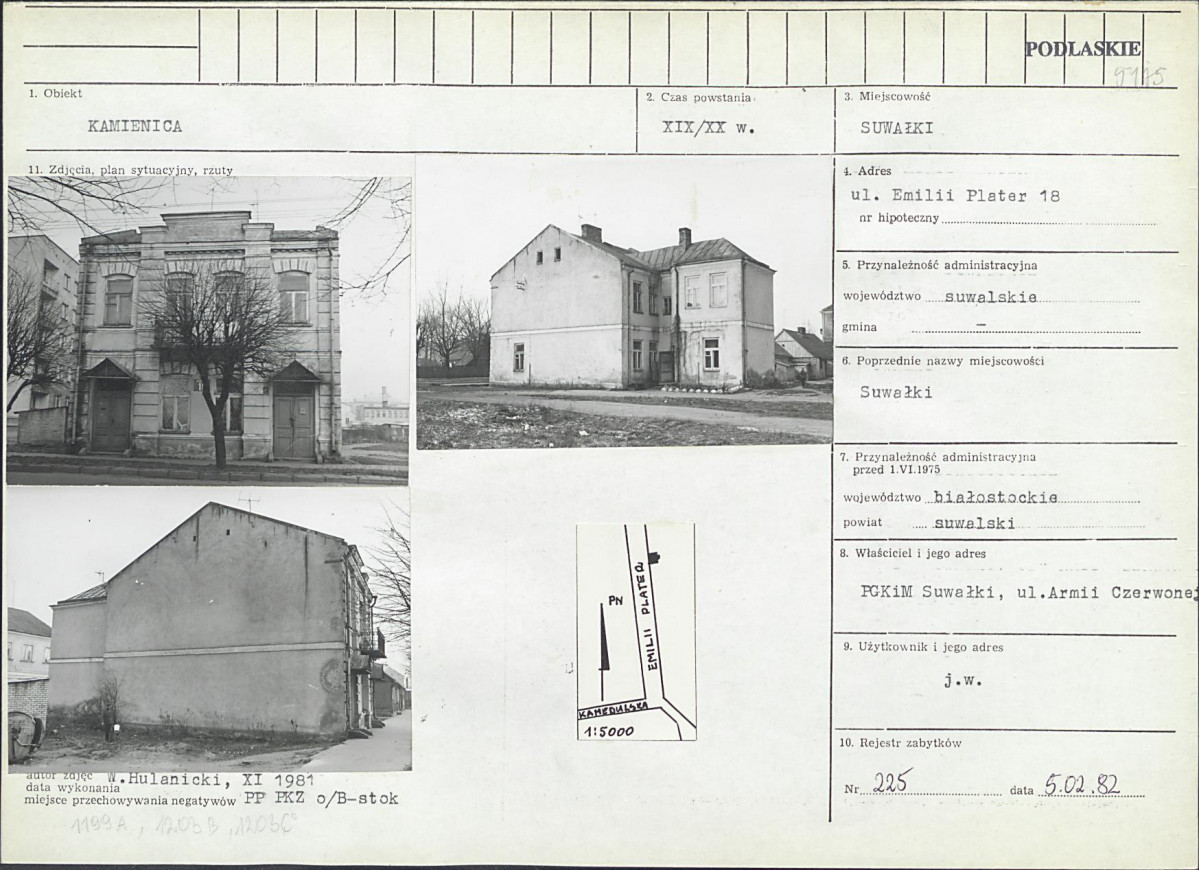 PODLASKIE
5175
1. Obiekt
KAMIENICA
2. Czas powstania
XIX/XX w.
3. Miejscowość
SUWAŁKI
11. Zdjęcia, plan sytuacyjny, rzuty
4. Adres
ul. Emilii Plater 18
nr hipoteczny
5. Przynależność administracyjna
województwo suwalskie
gmina –
6. Poprzednie nazwy miejscowości
Suwałki
7. Przynależność administracyjna
przed 1.VI.1975
województwo białostockie
powiat suwalski
8. Właściciel i jego adres
PGKiM Suwałki, ul.Armii Czerwonej
9. Użytkownik i jego adres
j.w.
10. Rejestr zabytków
Nr 225 data 5.02.82
PN
EMILII PLATER
KAMEDULSKA
1:5000
autor zdjęć W.Hulanicki, XI 1981
data wykonania
miejsce przechowywania negatywów PP PKZ o/B-stok
1199A, 1203B, 1203C